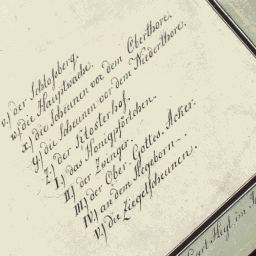 v.) der Schloßberg.
w.) die Hauptwache.
x.) die Scheunen vor dem Oberthore.
y.) die Scheunen vor dem Niederthore.
z.) der Klosterhof.
I.) das Honigpförtchen.
II.) der Zwinger
III.) der Ober. Gottes. Acker.
IV.) an dem Stegeborn.
V.) die Ziegelscheunen.